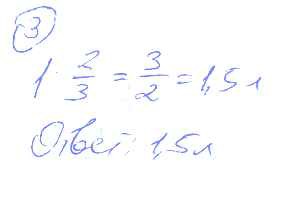 3
1 : 2/3 = 3/2 = 1,5 л
Ответ: 1,5 л